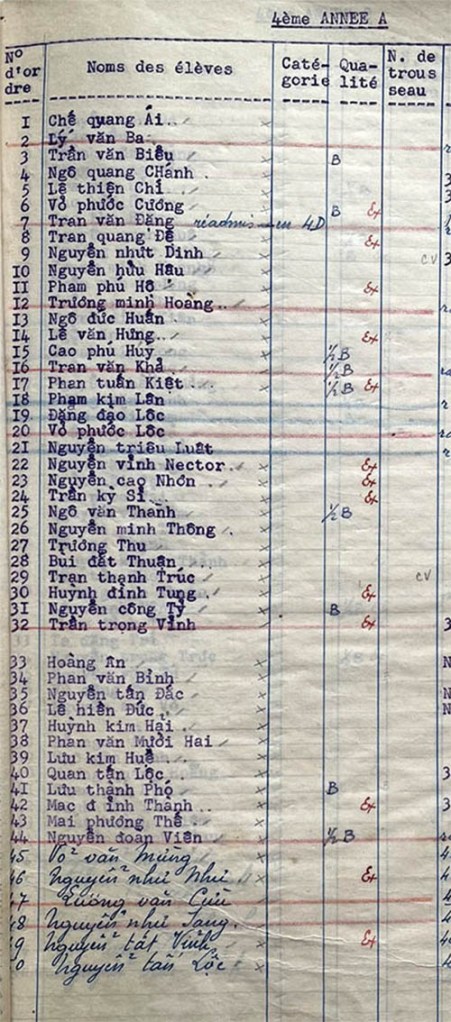 4ème ANNEE A
N° d'or dre Noms des élèves Caté- gorie Qua- lité N. de trous seau
I Chế quang Ái
2 Lý văn Ba
3 Trần văn Biểu B
4 Ngô quang CHánh 3
5 Lê thiện Chí 3
6 Võ phước Cường B Ex
7 Tran văn Đăng réadmis en 4D
8 Tran quang Đề Ex
9 Nguyễn nhứt Dinh CV 3
IO Nguyễn hữu Hâu
II Pham phú Hổ Ex
I2 Trương minh Hoàng
I3 Ngô đức Huấn
I4 Lê văn Hưng Ex
I5 Cao phú Húy ½ B
I6 Tran văn Khả ½ B
I7 Phan tuấn Kiệt ½ B Ex
I8 Phạm kim Lân
I9 Đặng đạo Lôc
20 Võ phước Lôc
2I Nguyễn triêu Luât
22 Nguyễn vinh Nector Ex
23 Nguyễn cao Nhơn Ex
24 Trần kỳ Sỉ Ex
25 Ngô văn Thanh ½ B
26 Nguyễn minh Thông
27 Trương Thu
28 Bui đắt Thuận
29 Tran thanh Trúc CV
30 Huỳnh đình Tụng Ex
3I Nguyễn công Tỷ B
32 Trần trọng Vinh Ex 3
33 Hoàng Ân N
34 Phan văn Bình
35 Nguyễn tấn Đắc N
36 Lê hiền Đức N
37 Huỳnh kim Hải
38 Phan văn Mười Hai
39 Lưu kim Huê
40 Quan tấn Lôc 3
4I Lưu thành Phọ B
42 Mac đình Thành Ex 3
43 Mai phương Thể
44 Nguyễn đoan Viên ½ B
45 Võ văn Mừng
46 Nguyễn như Nhu Ex
47 Lương văn Cửu
48 Nguyễn như Sang.
49 Nguyễn tất Vinh Ex
0 Nguyễn tấn Lộc